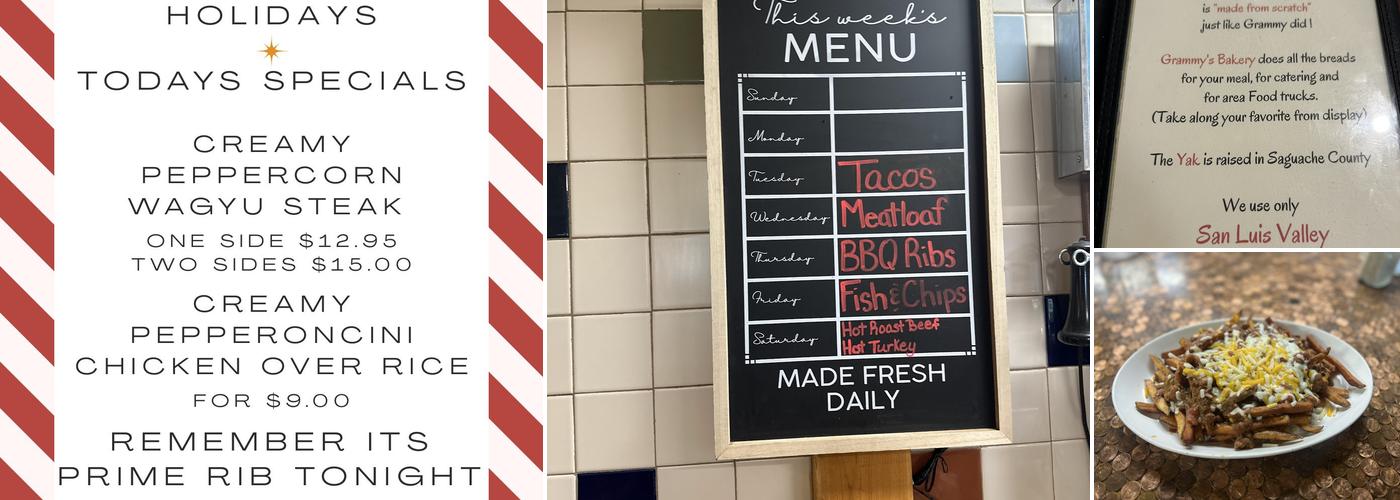 HOLIDAYS
TODAYS SPECIALS
CREAMY
PEPPERCORN
WAGYU STEAK
ONE SIDE $12.95
TWO SIDES $15.00
CREAMY
PEPPERONCINI
CHICKEN OVER RICE
FOR $9.00
REMEMBER ITS
PRIME RIB TONIGHT
This week's
MENU
Sunday
Monday
Tuesday Tacos
Wednesday Meatloaf
Thursday BBQ Ribs
Friday Fish & Chips
Saturday Hot Roast Beef
Hot Turkey
MADE FRESH
DAILY
is "made from scratch"
just like Grammy did !
Grammy's Bakery does all the breads
for your meal, for catering and
for area Food trucks.
(Take along your favorite from display)
The Yak is raised in Saguache County
We use only
San Luis Valley